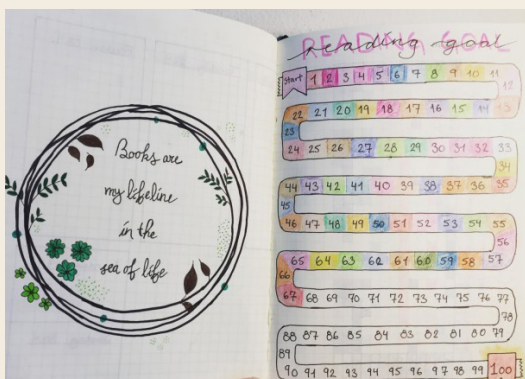 Books are
my lifeline
in the
sea of life
READING GOAL
reading goal
start 1 2 3 4 5 6 7 8 9 10 11
12
22 21 20 19 18 17 16 15 14 13
23
24 25 26 27 28 29 30 31 32 33
34
44 43 42 41 40 39 38 37 36 35
45
46 47 48 49 50 51 52 53 54 55
56
65 64 63 62 61 60 59 58 57
66
67 68 69 70 71 72 73 74 75 76 77
78
88 87 86 85 84 83 82 81 80 79
89
90 91 92 93 94 95 96 97 98 99 100